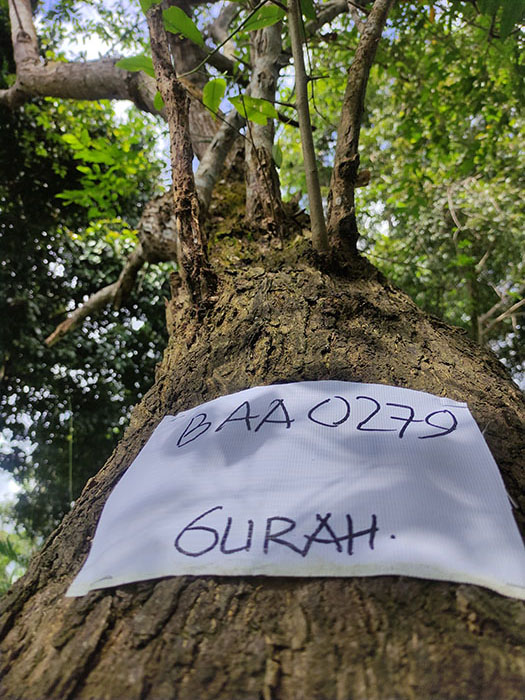 BAA0279
GURAH.